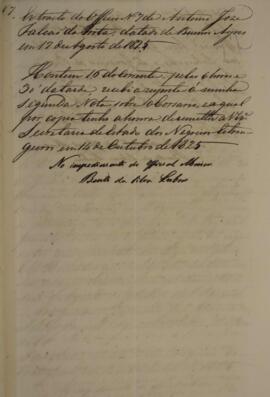 Extracto do Officio Nº 7 de Antonio José
Falcão da Frota, datado de Buenos Ayres
em 17 de Agosto de 1825
Hontem 16 do Corrente pelas 6 horas e
30' da tarde, recebi a resposta á minha
segunda Nota sobre o Corsario, a qual
por copia tenho a honra de remetter a V. Exª
Secretaria de Estado dos Negocios Estran
geiros em 14 de Outubro de 1825
No impedimento do Official Maior
Bento da Silva Lisboa